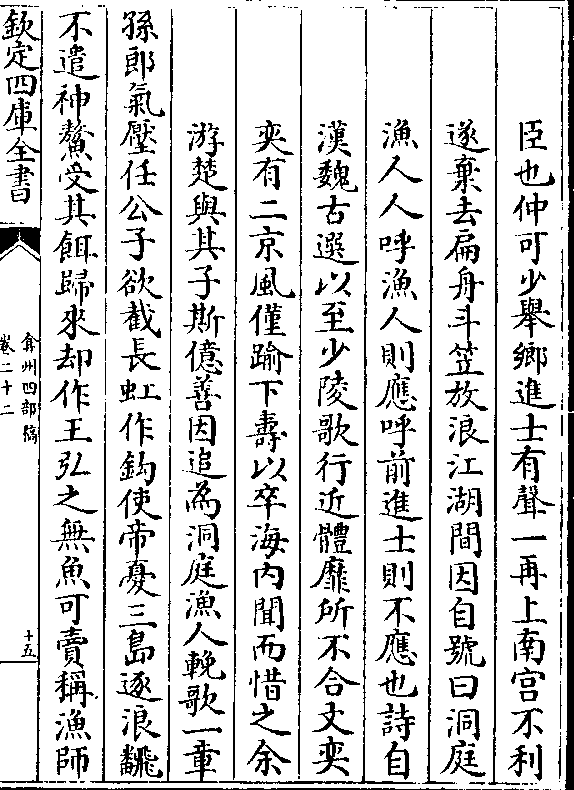 臣也仲可少舉鄉進士有聲一再上南宫不利
遂棄去扁舟斗笠放浪江湖間因自號曰洞庭
漁人人呼漁人則應呼前進士則不應也詩自
漢魏古選以至少陵歌行近體靡所不合文奕
奕有二京風僅踰下壽以卒海内聞而惜之余
游楚與其子斯億善因追為洞庭漁人輓歌一章
孫郎氣壓任公子欲截長虹作鈎使帝憂三島逐浪飜
不遣神鰲受其餌歸來却作王弘之無魚可賣稱漁師
欽定四庫全書
弇州四部稿
卷二十二
十五